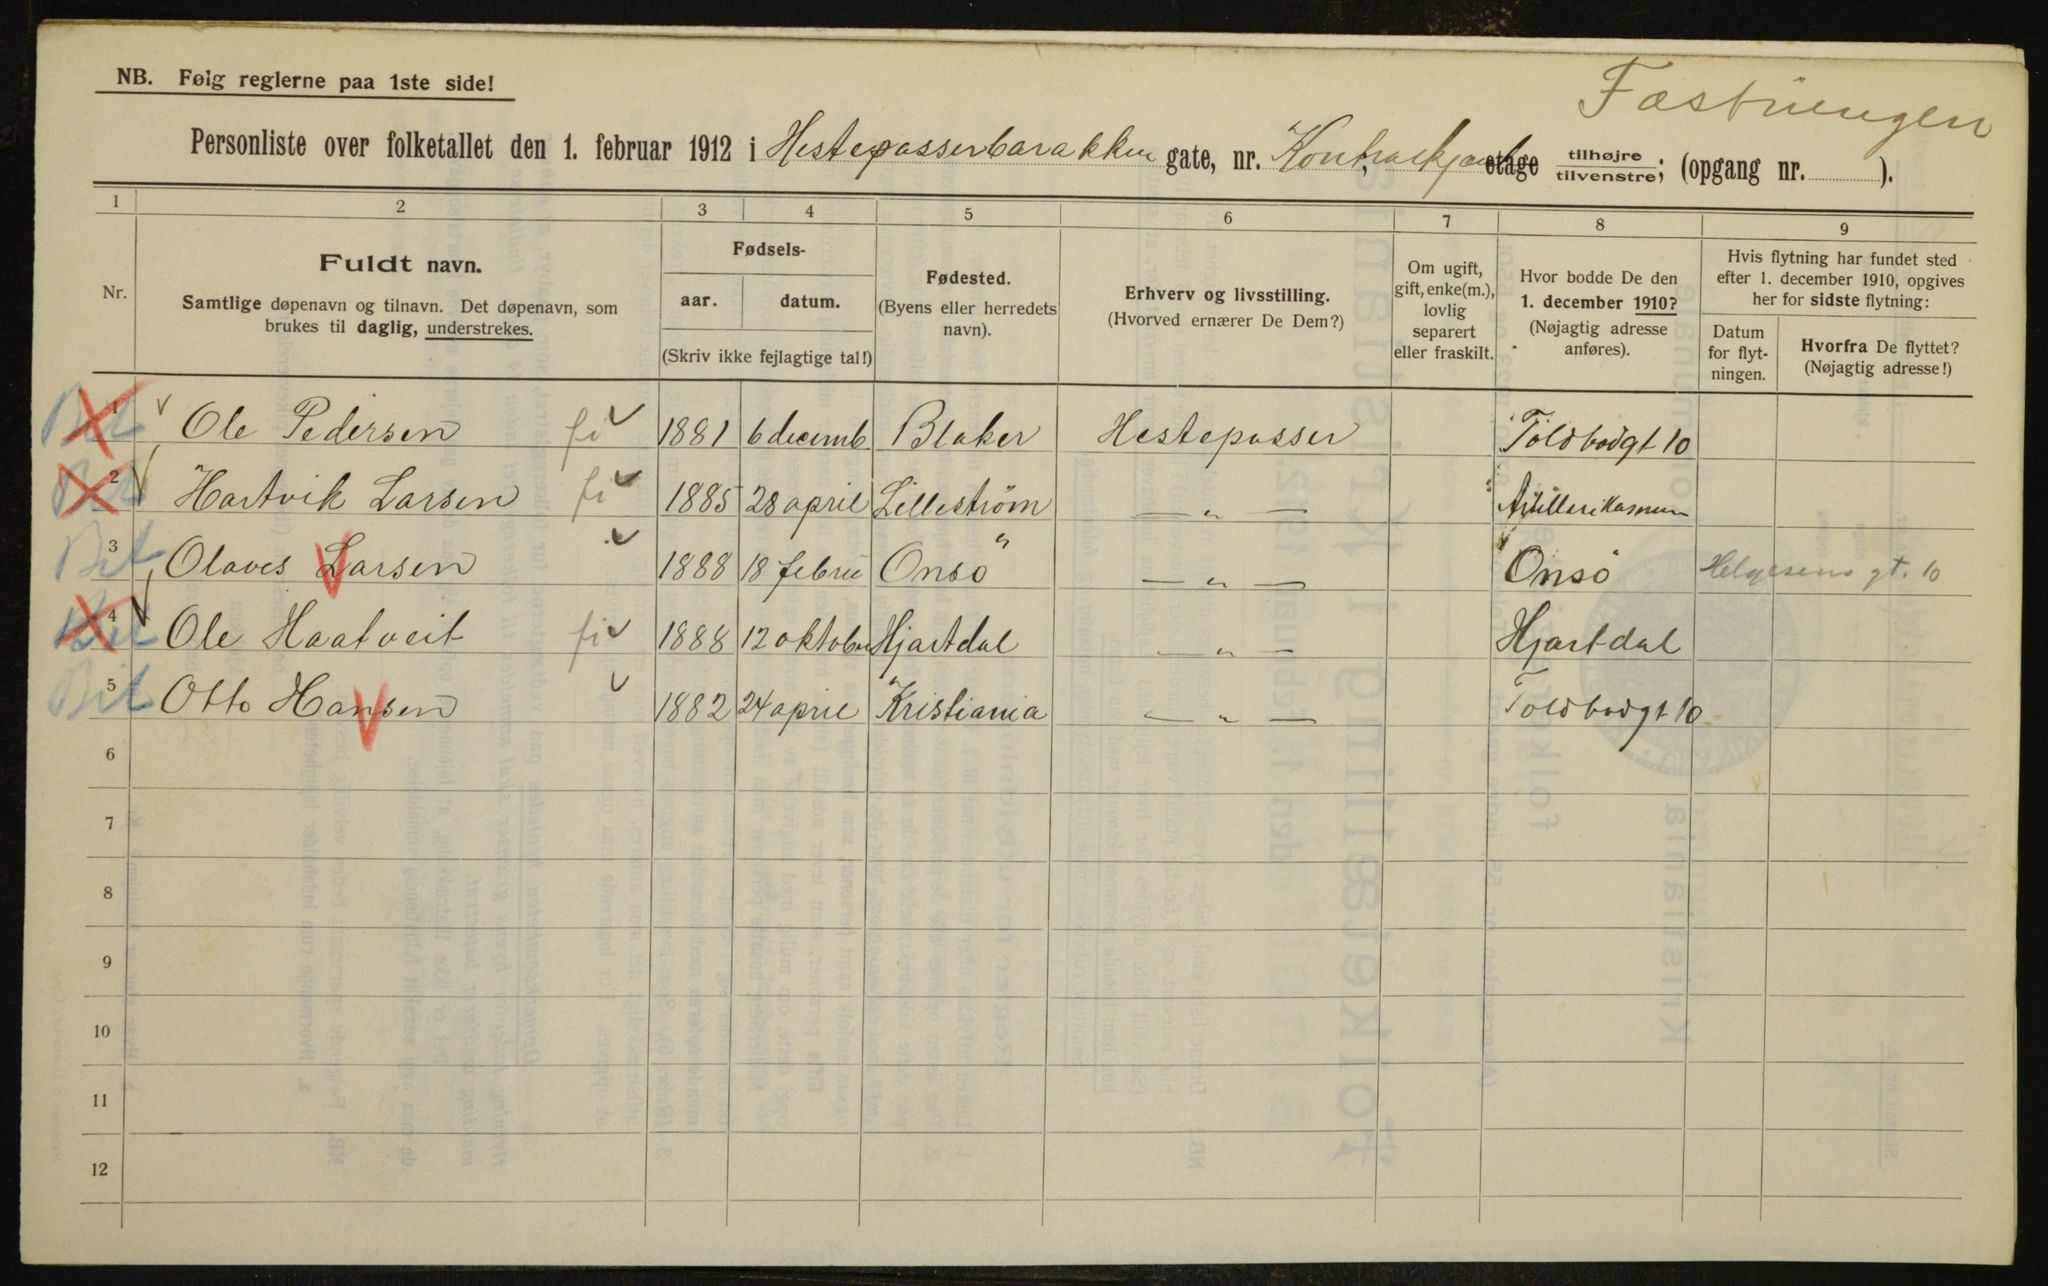 NB. Følg reglerne paa 1ste side!
Fæstningen
Personliste over folketallet den 1. februar 1912 i Hestepasserbarakken gate, nr. etage tilhøjre tilvenstre; (opgang nr. ).
1 2 3 4 5 6 7 8 9
Nr.
Fuldt navn.
Samtlige døpenavn og tilnavn. Det døpenavn, som
brukes til daglig, understrekes.
Fødsels-
aar. datum.
(Skriv ikke fejlagtige tal!)
Fødested.
(Byens eller herredets
navn).
Erhverv og livsstilling.
(Hvorved ernærer De Dem?)
Om ugift,
gift, enke(m.),
lovlig
separert
eller fraskilt.
Hvor bodde De den
1. december 1910?
(Nøjagtig adresse
anføres).
Hvis flytning har fundet sted
efter 1. december 1910, opgives
her for sidste flytning:
Datum
for flyt-
ningen.
Hvorfra De flyttet?
(Nøjagtig adresse!)
1 Ole Pedersen fi 1881 6 decemb Blaker Hestepasser Toldbodgt 10
2 Hartvik Larsen fi 1885 28 april Lilleström — „ —
3 Olaves Larsen 1888 18 febru Onsö — „ — Onsö Helgesens gt. 10
4 Ole Haatveit fi 1888 12 oktober Hjartdal — „ — Hjartdal
5 Otto Hansen 1882 24 april Kristiania — „ — Toldbodgt 10
6
7
8
9
10
11
12